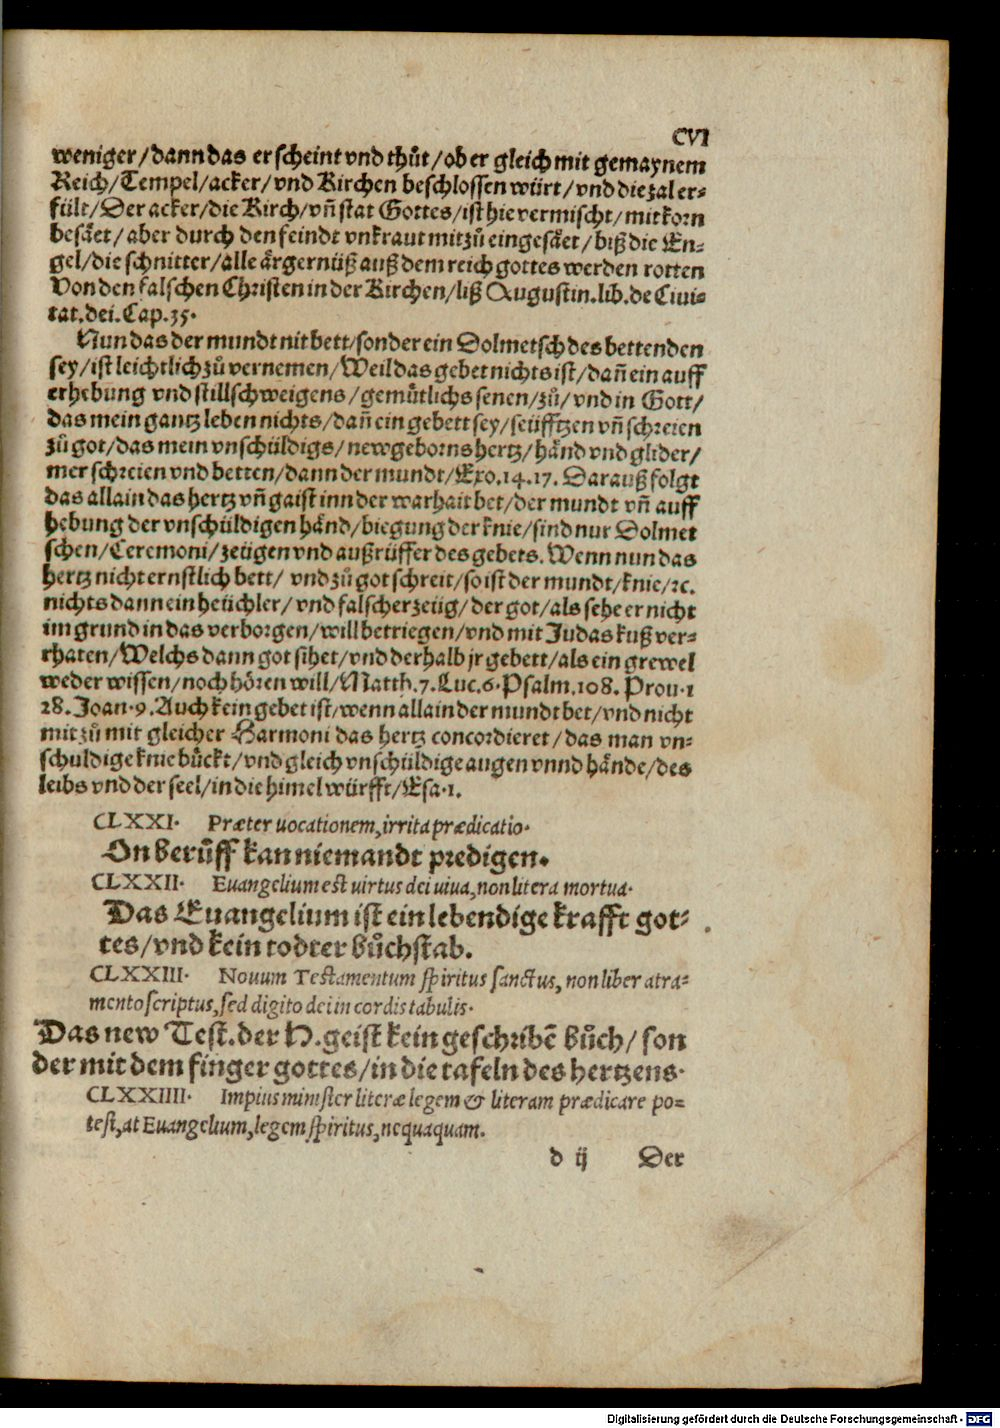 CVI
weniger/dann das er scheint vnd thůt/ob er gleich mit gemaynem
Reich/Tempel/acker/vnd Kirchen beschlossen würt/vnd die zal er-
fült/Der acker/die Kirch/vñ stat Gottes/ist hie vermischt/mit korn
besäet/aber durch den feindt vnkraut mitzů eingesäet/biß die En-
gel/die schnitter/alle ärgernüß auß dem reich gottes werden rotten
Von den falschen Christen in der Kirchen/liß Augustin.lib.de Ciui-
tat.dei.Cap.35.
Nun das der mundt nit bett/sonder ein Dolmetsch des bettenden
sey/ist leichtlich zů vernemen/Weil das gebet nichts ist/dañ ein auff
erhebung vnd stillschweigens/gemütlichs senen/zů/vnd in Gott/
das mein gantz leben nichts/dañ ein gebett sey/seüfftzen vñ schreien
zů got/das mein vnschüldigs/newgeborns hertz/händ vnd glider/
mer schreien vnd betten/dann der mundt/Exo.14.17. Darauß folgt
das allain das hertz vñ gaist inn der warhait bet/der mundt vñ auff
hebung der vnschüldigen händ/biegung der knie/sind nur Dolmet
schen/Ceremoni/zeügen vnd außrüffer des gebets. Wenn nun das
hertz nicht ernstlich bett/ vnd zů got schreit/so ist der mundt/knie/ꝛc.
nichts dann ein heüchler/vnd falscher zeüg/der got/als sehe er nicht
im grund in das verborgen/will betriegen/vnd mit Judas kuß ver-
rhaten/Welchs dann got sihet/vnd derhalb jr gebett/als ein grewel
weder wissen/noch hören will/Matth.7.Luc.6.Psalm.108. Prou.1
28. Joan.9. Auch kein gebet ist/wenn allain der mundt bet/vnd nicht
mitzů mit gleicher Harmoni das hertz concordieret/das man vn-
schuldige knie bückt/vnd gleich vnschüldige augen vnnd hände/des
leibs vnd der seel/in die himel würfft/Esa.1.
CLXXI. Præter uocationem,irrita prædicatio.
On berůff kan niemandt predigen.
CLXXII. Euangelium est uirtus dei uiua, non litera mortua.
Das Euangelium ist ein lebendige krafft got-
tes/vnd kein todter bůchstab.
CLXXIII. Nouum Testamentum spiritus sanctus, non liber atra-
mento scriptus,sed digito dei in cordis tabulis.
Das new Test.der H.geist kein geschribē bůch/son
der mit dem finger gottes/in die tafeln des hertzens.
CLXXIIII. Impius minister literæ legem & literam prædicare po-
test,at Euangelium,legem spiritus,nequaquam.
d ij Der
Digitalisierung gefördert durch die Deutsche Forschungsgemeinschaft - DFG